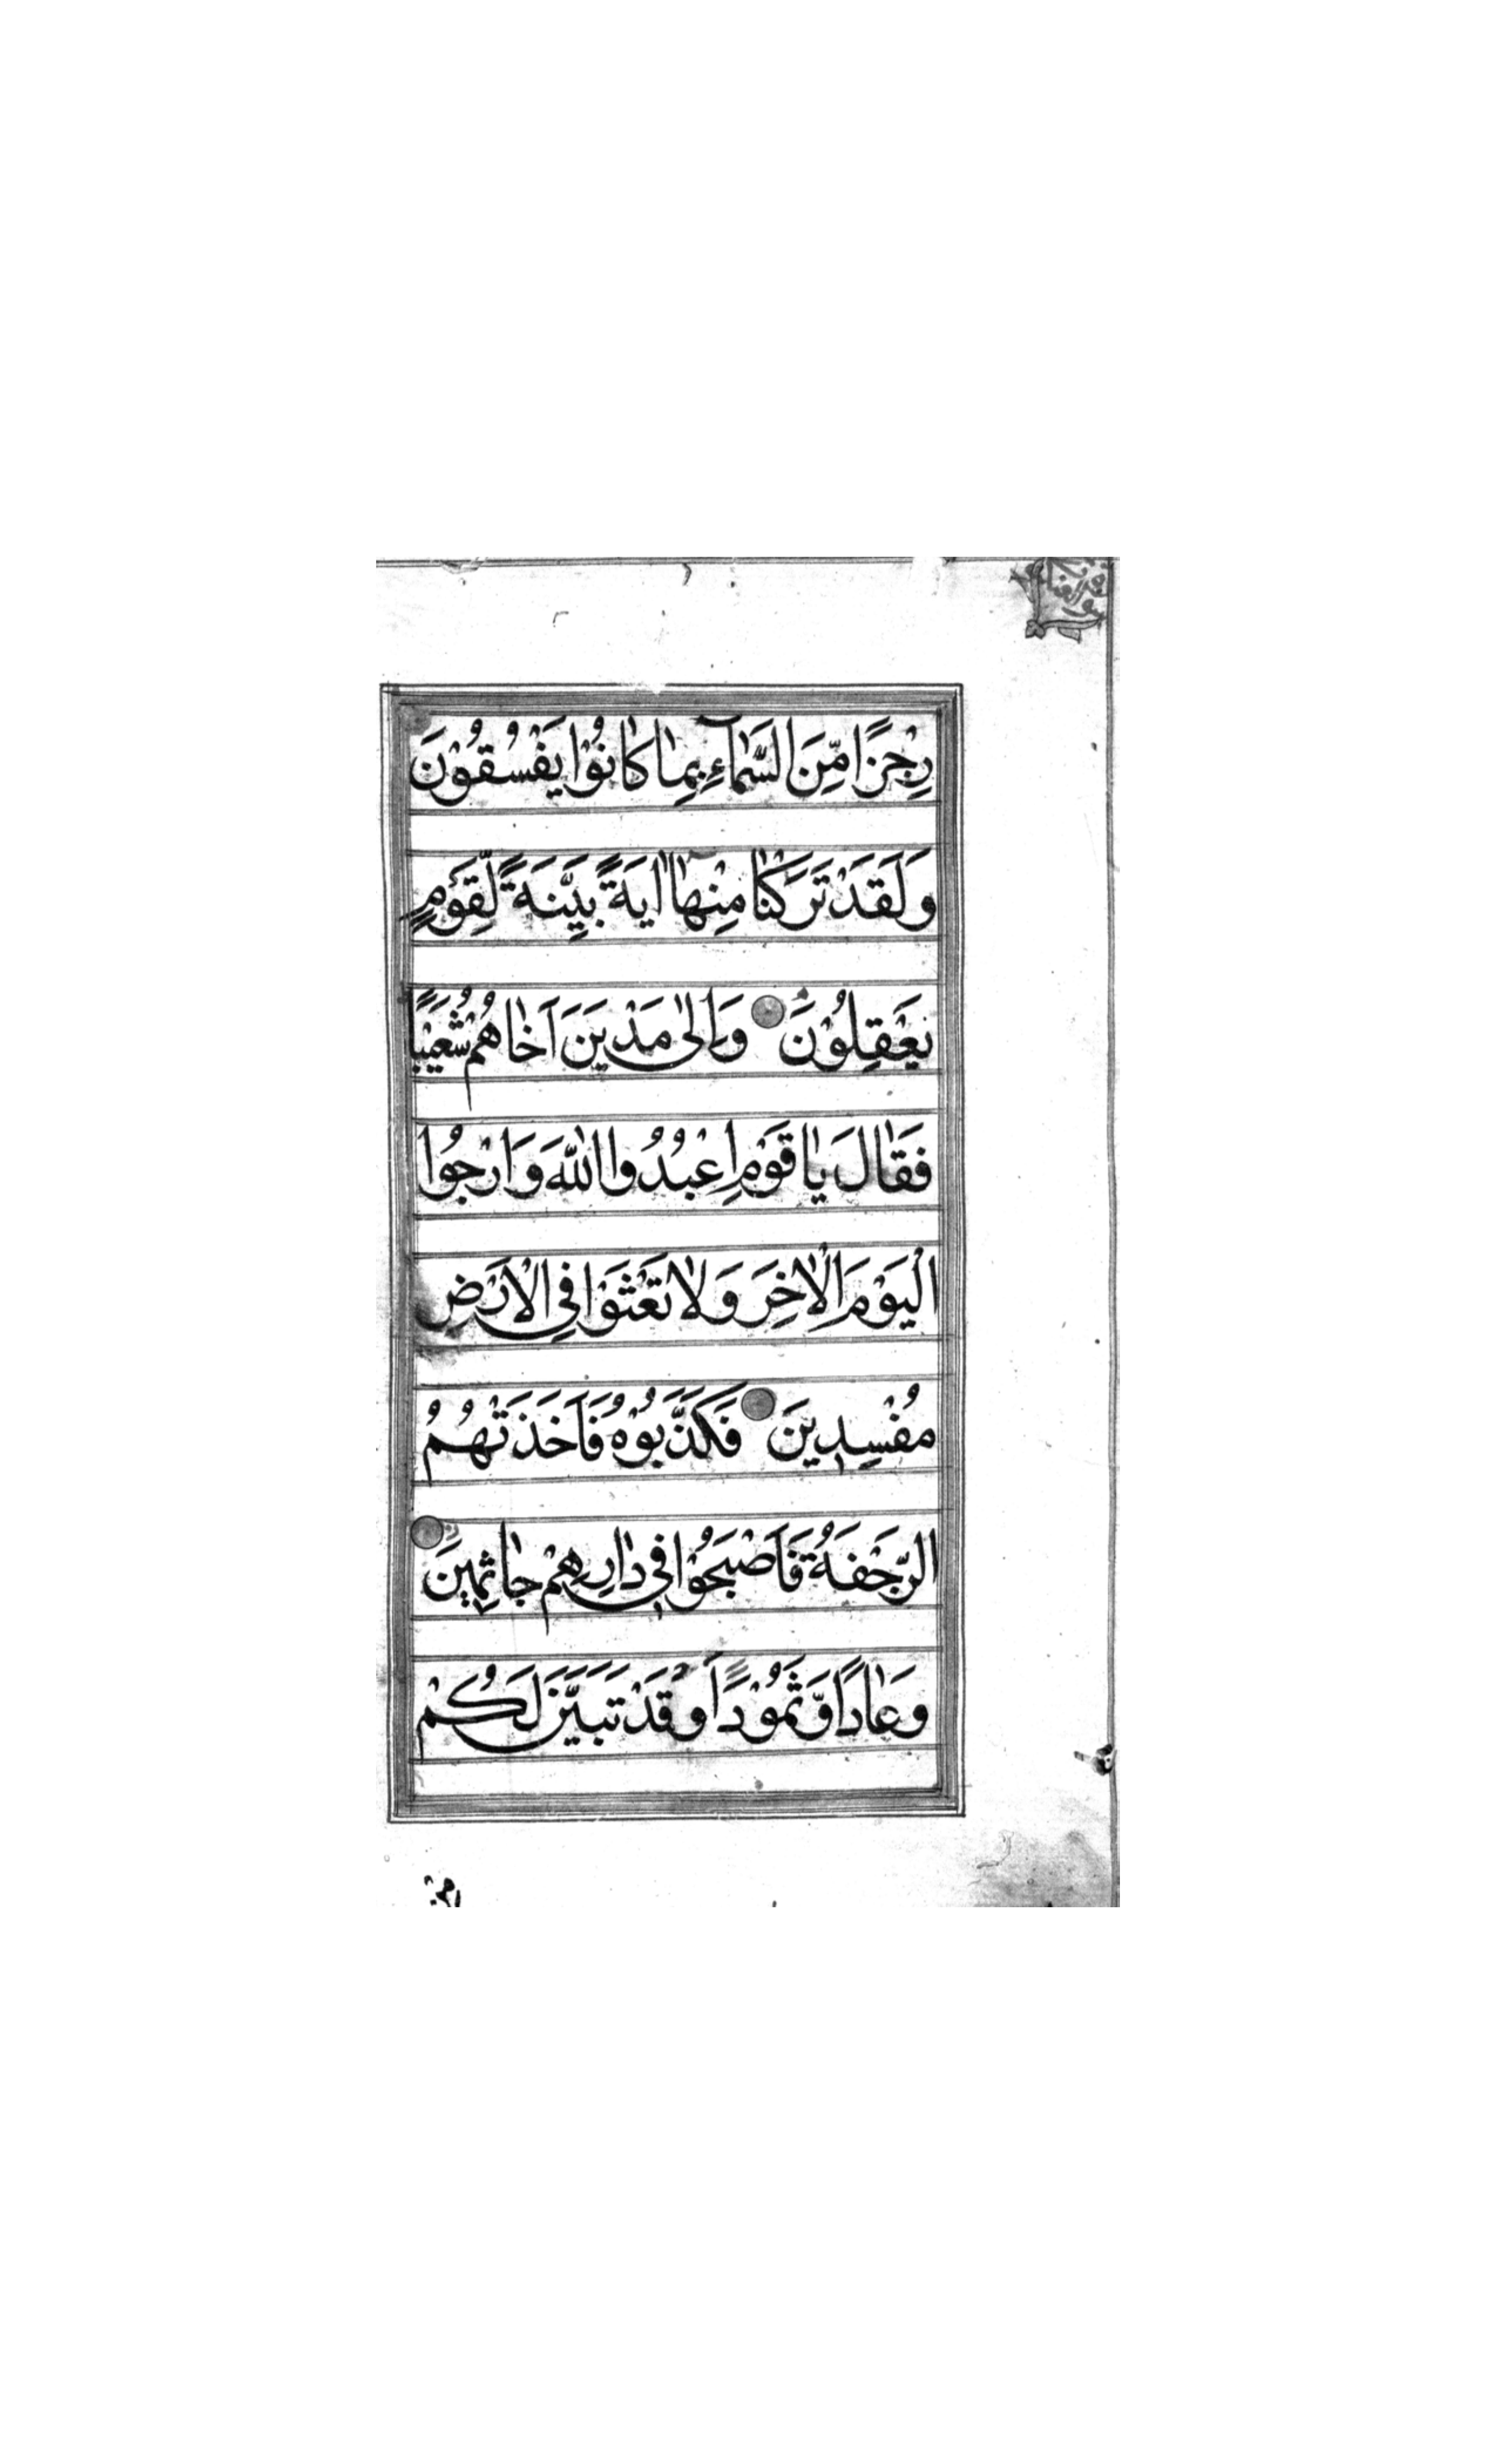 رِجْزًا مِّنَ السَّمَآءِ بِمٰا كٰانُوْا يَفْسُقُوْنَ
وَلَقَدْ تَرَكْنٰا مِنْهٰٓا اٰيَةً بَيِّنَةً لِّقَوْمٍ
يَعْقِلُوْنَ وَاِلٰى مَدْيَنَ اَخٰاهُمْ شُعَيْبًا
فَقٰالَ يٰا قَوْمِ اعْبُدُوا اللّٰهَ وَارْجُوا
الْيَوْمَ الْاٰخِرَ وَلٰا تَعْثَوْا فِي الْاَرْضِ
مُفْسِدِينَ فَكَذَّبُوْهُ فَاَخَذَتْهُمُ
الرَّجْفَةُ فَاَصْبَحُوْا فِي دٰارِهِمْ جٰاثِمِينَ
وَعٰادًا وَّثَمُوْدًا وَقَدْ تَبَيَّنَ لَكُمْ